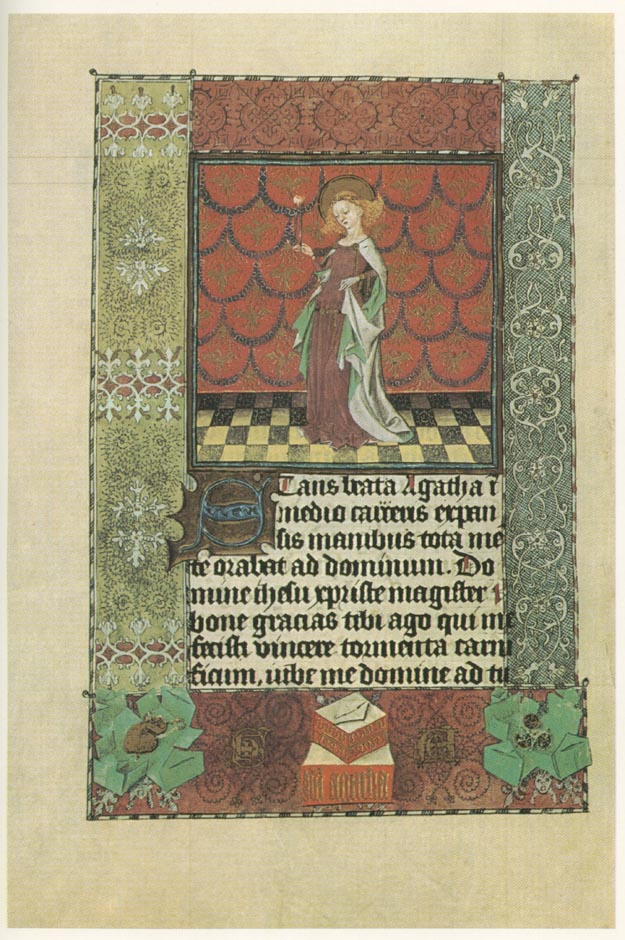 STans beata Agatha ī
medio carceris expan
sis manibus tota me
te orabat ad dominum. Do
mine ihesu xpriste magister
bone gracias tibi ago qui me
fecisti vincere tormenta carni
ficum, iube me domine ad tu